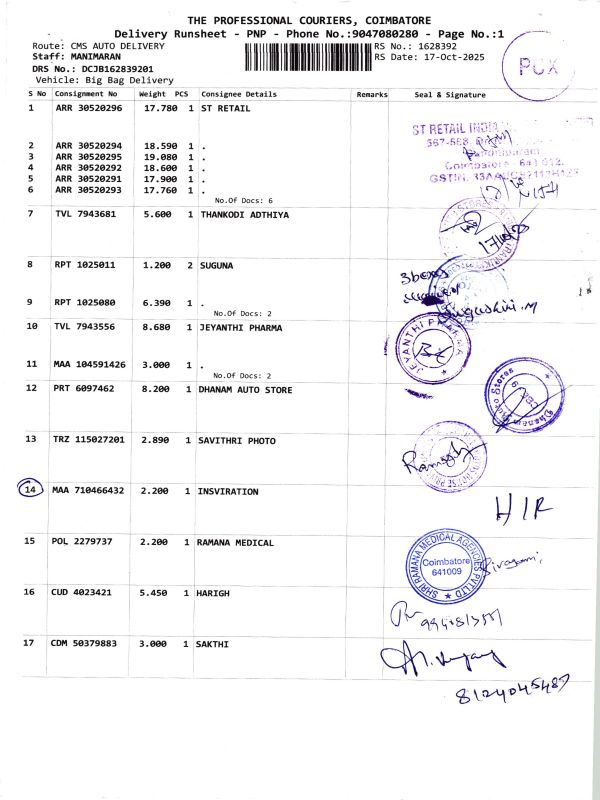 THE PROFESSIONAL COURIERS, COIMBATORE
Delivery Runsheet - PNP - Phone No.:9047080280 - Page No.:1
Route: CMS AUTO DELIVERY
RS No.: 1628392
Staff: MANIMARAN
RS Date: 17-Oct-2025
DRS No.: DCJB162839201
Vehicle: Big Bag Delivery
PUX
S No Consignment No Weight PCS Consignee Details Remarks Seal & Signature
1 ARR 30520296 17.780 1 ST RETAIL
ST RETAIL INDIA
567-568,
Coimbatore 641 012.
2 ARR 30520294 18.590 1 .
3 ARR 30520295 19.080 1 .
4 ARR 30520292 18.600 1 .
5 ARR 30520291 17.900 1 .
6 ARR 30520293 17.760 1 .
No.Of Docs: 6
7 TVL 7943681 5.600 1 THANKODI ADTHIYA
8 RPT 1025011 1.200 2 SUGUNA
3 boxes
9 RPT 1025080 6.390 1 .
No.Of Docs: 2
10 TVL 7943556 8.680 1 JEYANTHI PHARMA
JEYANTHI PHARMA
11 MAA 104591426 3.000 1 .
No.Of Docs: 2
12 PRT 6097462 8.200 1 DHANAM AUTO STORE
Dhanam Auto Stores
CBE
13 TRZ 115027201 2.890 1 SAVITHRI PHOTO
14 MAA 710466432 2.200 1 INSVIRATION
H/R
15 POL 2279737 2.200 1 RAMANA MEDICAL
SHRI RAMANA MEDICAL AGENCIES PVT LTD
Coimbatore
641009
16 CUD 4023421 5.450 1 HARIGH
17 CDM 50379883 3.000 1 SAKTHI
8124045487